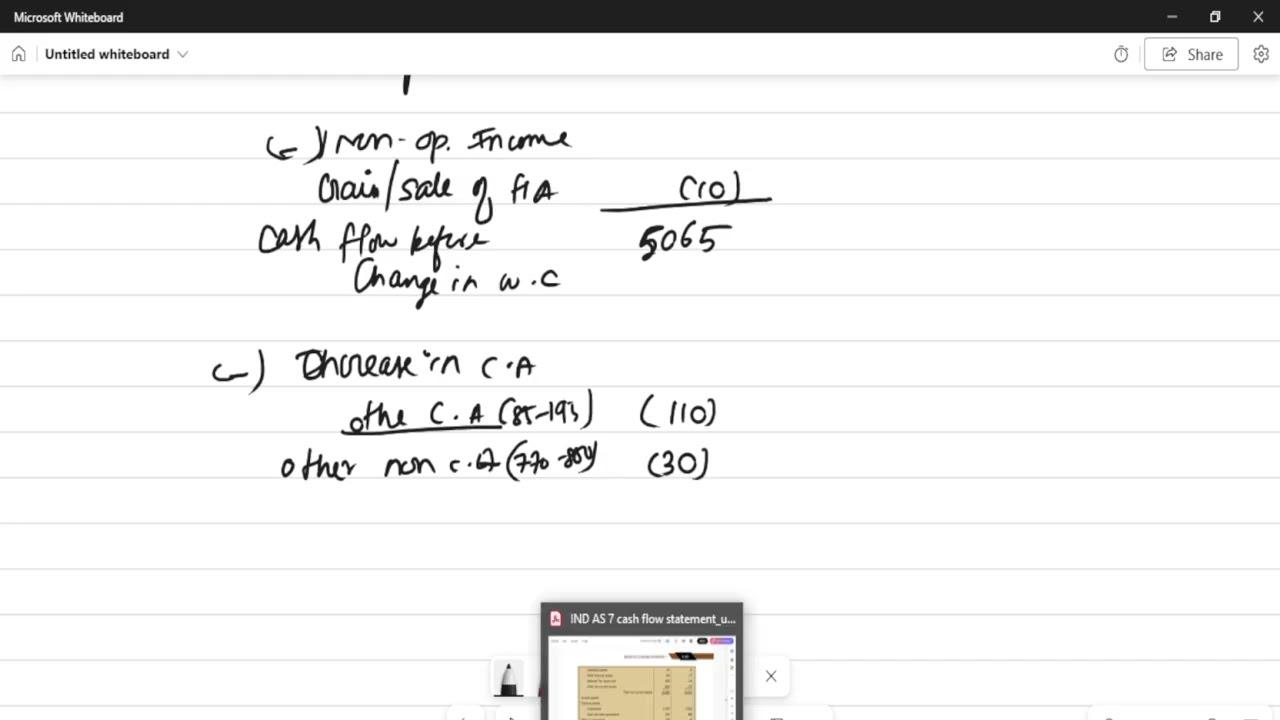 Microsoft Whiteboard
Untitled whiteboard
Share
(-) non-op. Income
Gain/sale of FA (10)
Cash flow before 5065
Change in w.c
(-) Increase in C.A
othe C.A (85-195) (110)
other non c.A (770-800) (30)
IND AS 7 cash flow statement_u...